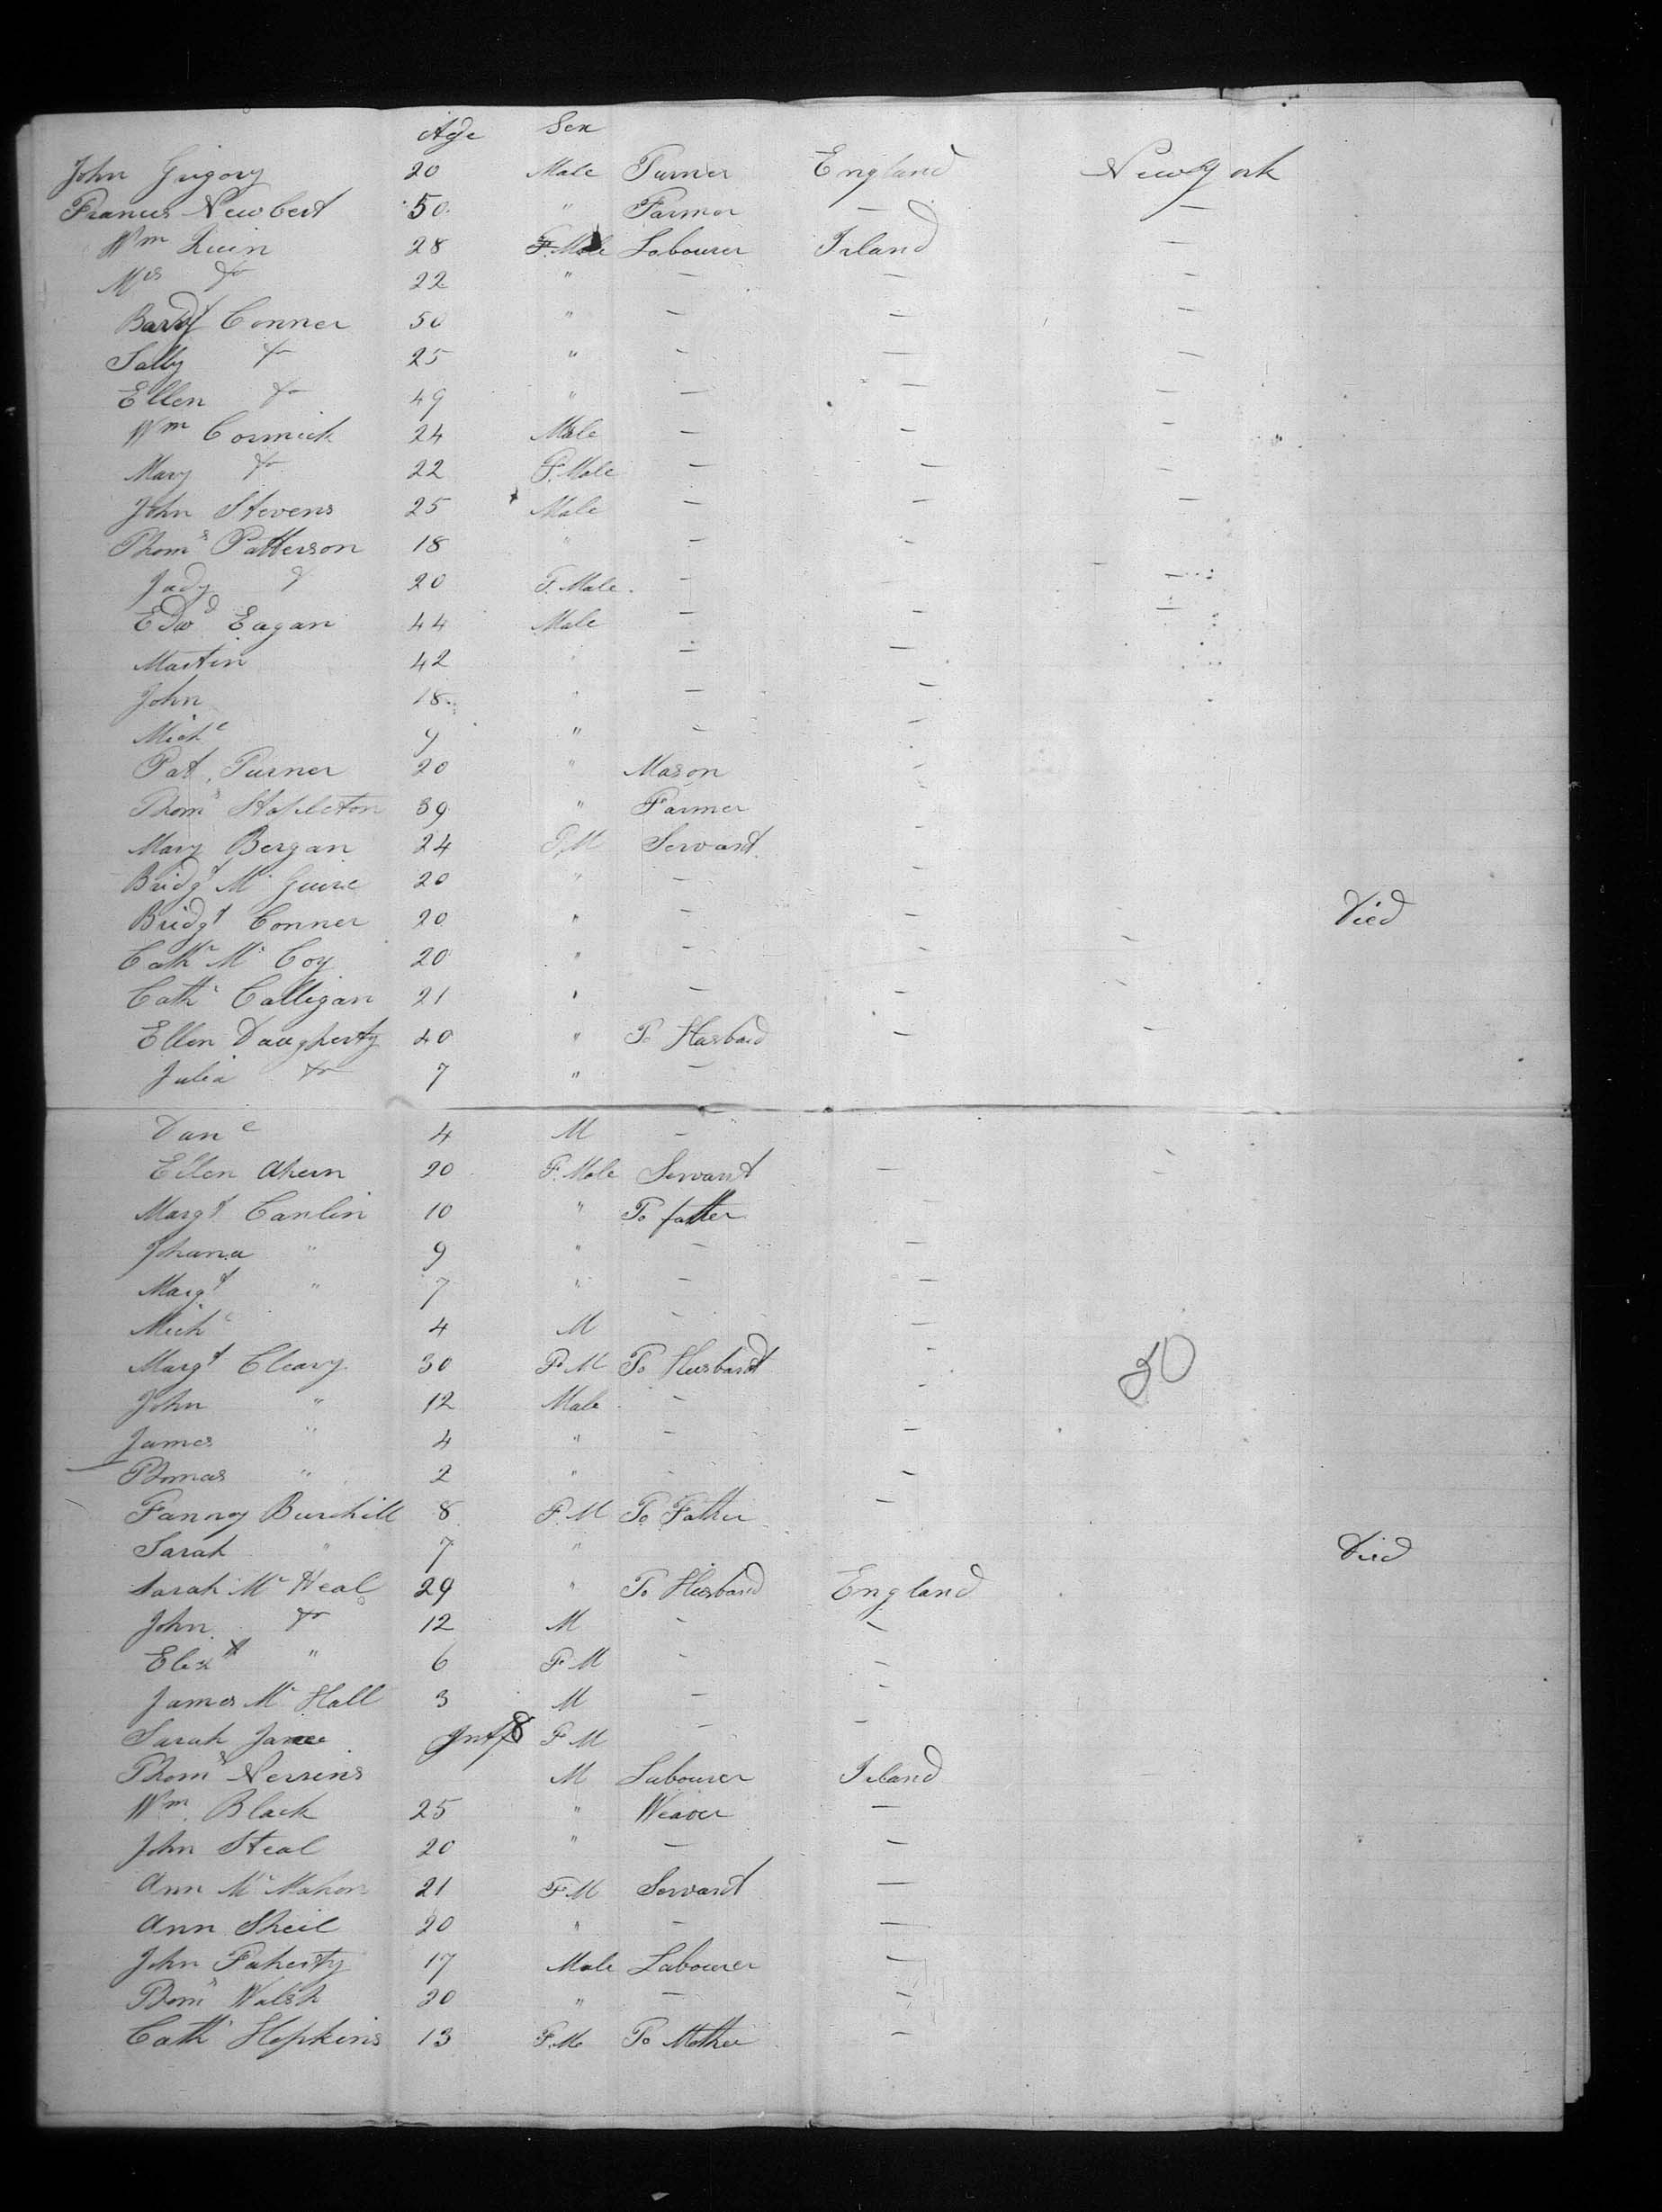 Age Sex
John Grigory 20 Male Turner England New York
Francis Newbert 50 " Farmer — —
Wm Quin 28 F. Male Labourer Irland —
Mrs Do 22 " — — —
Conner 50 " — — —
Sally Do 25 " — — —
Ellen Do 49 " — — —
Wm Cormick 24 Male — — —
Mary Do 22 F. Male — — —
John Stevens 25 Male — — —
Thoms Patterson 18 " — —
Judy Do 20 F. Male — — —
Edwd Eagan 44 Male — — —
Martin 42 " — —
John 18 " — —
Michl 9 " — —
Pat Turner 20 " Mason —
Thoms Stapleton 39 " Farmer —
Mary Bergan 24 F. M Servant —
Bridgt Mc Guire 20 " — —
Bridgt Conner 20 " — — Died
Cath Mc Coy 20 " — — —
Cath Calligan 21 " — — —
Ellen Daugherty 40 " To Husband — —
Julia Do 7 " —
Danl 4 M —
Ellen Ahern 20 F. Male Servant —
Margt Canlin 10 " To father —
Johana " 9 " — —
Margt " 7 " — —
Michl 4 M — —
Margt Cleary 30 F. M To Husband — 50
John " 12 Male — —
James " 4 " — —
Thomas " 2 " — —
Fanny Burchill 8 F. M To Father —
Sarah " 7 " Died
Sarah Mc Neal 29 " To Husband England
John Do 12 M — —
Elizth " 6 F M — —
James Mc Hall 3 M — —
Sarah Jane Inft F M — —
Thoms Nerrins M Labourer Irland
Wm Black 25 " Weaver —
John Steal 20 " — —
Ann Mc Mahon 21 F M Servant —
Ann Sheil 20 " — —
John Faherty 17 Male Labourer —
Thoms Walsh 20 " — —
Cath Hopkins 13 F. M To Mother —